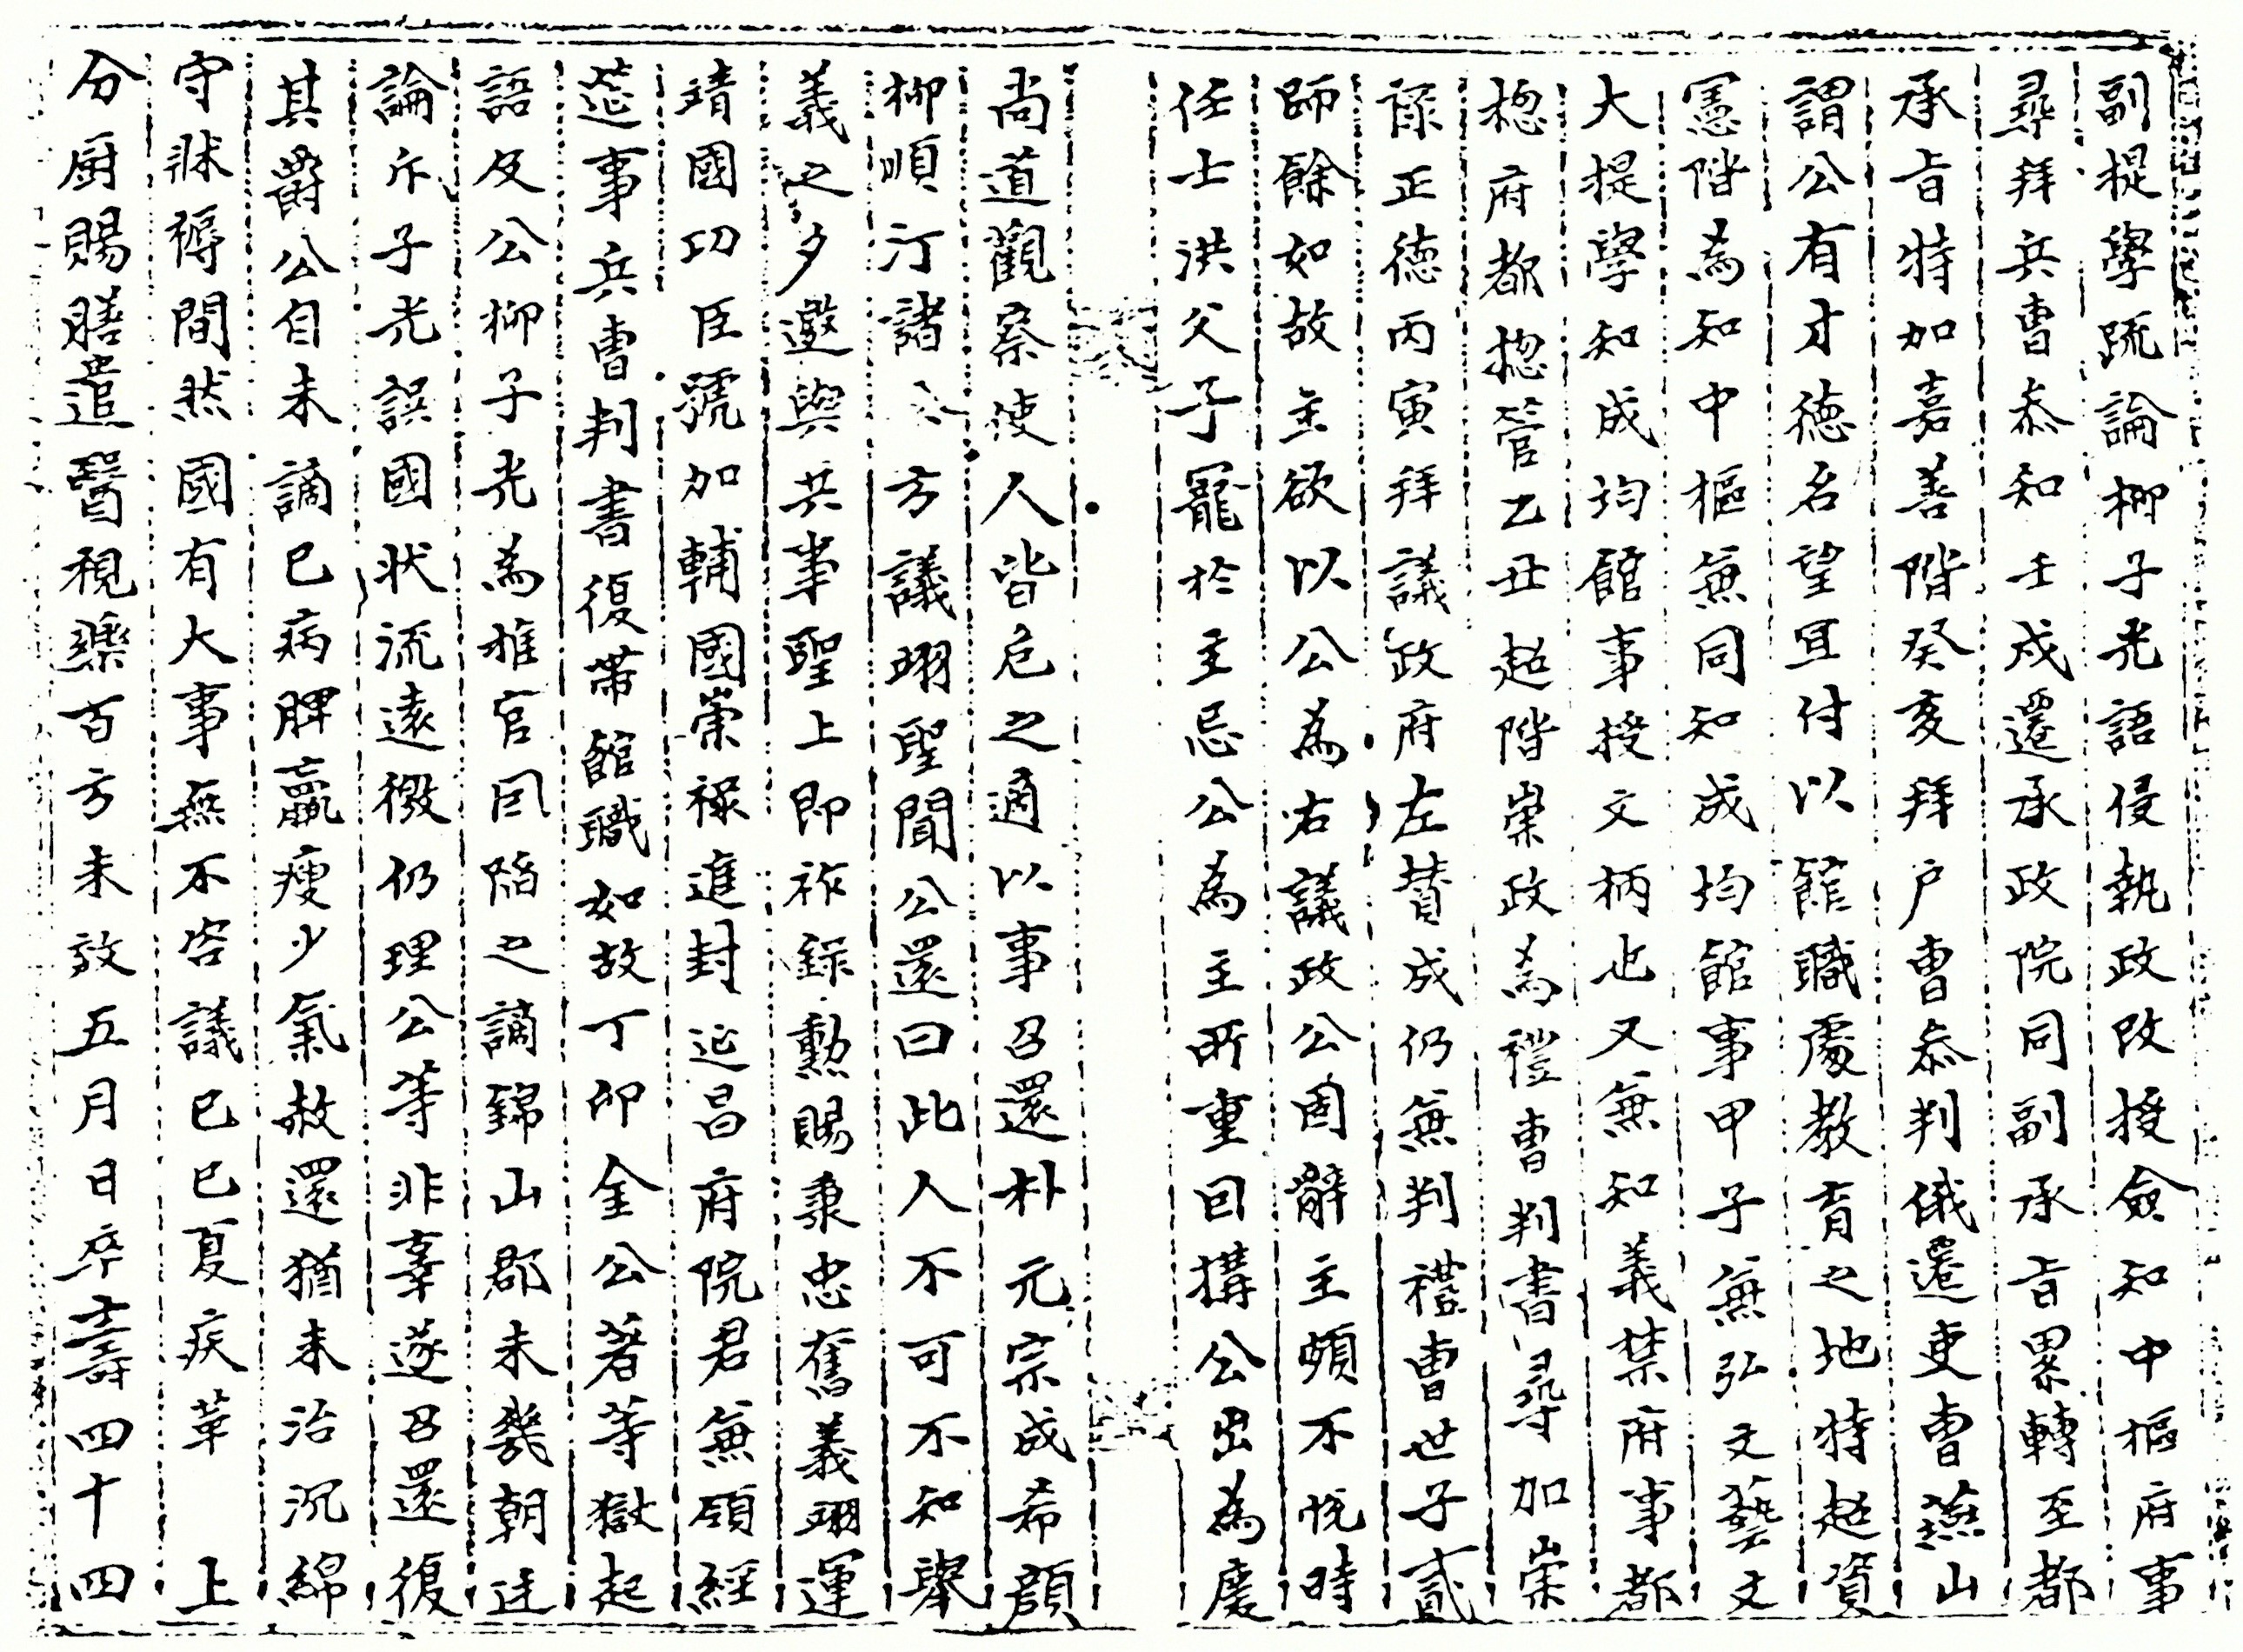 副提學䟽論柳子光語侵執政改授僉知中樞府事
尋拜兵曹叅知壬戌還承政院同副承旨累轉至都
承旨特加嘉善階癸亥拜戶曹叅判俄遷吏曹燕山
謂公有才德名望宜付以館職處敎育之地特超資
憲階為知中樞兼同知成均館事甲子兼弘文藝文
大提學知成均館事授文柄也又兼知義禁府事都
揔府都揔管乙丑超階崇政為禮曹判書尋加崇
祿正德丙寅拜議政府左賛成仍兼判禮曹世子貳
師餘如故主欲以公為右議政公固辭主頗不悅時
任士洪父子寵於主忌公為主所重因搆公出為慶
尚道觀察使人皆危之適以事召還朴元宗成希顔
柳順汀諸公方議翊聖聞公還曰此人不可不知擧
義之夕邀與共事聖上即祚錄勳賜秉忠奮義翊運
靖國功臣號加輔國崇祿進封延昌府院君兼領經
莚事兵曹判書復帶館職如故丁卯金公著等獄起
語及公柳子光為推官因陷之謫錦山郡未幾朝廷
論斥子光誤國狀流遠徼仍理公等非辜遂召還復
其爵公自未謫已病脾羸瘦少氣赦還猶未治沉綿
守牀褥間然國有大事無不咨議己巳夏疾革 上
分厨賜膳遣醫視藥百方未效五月日卒壽四十四